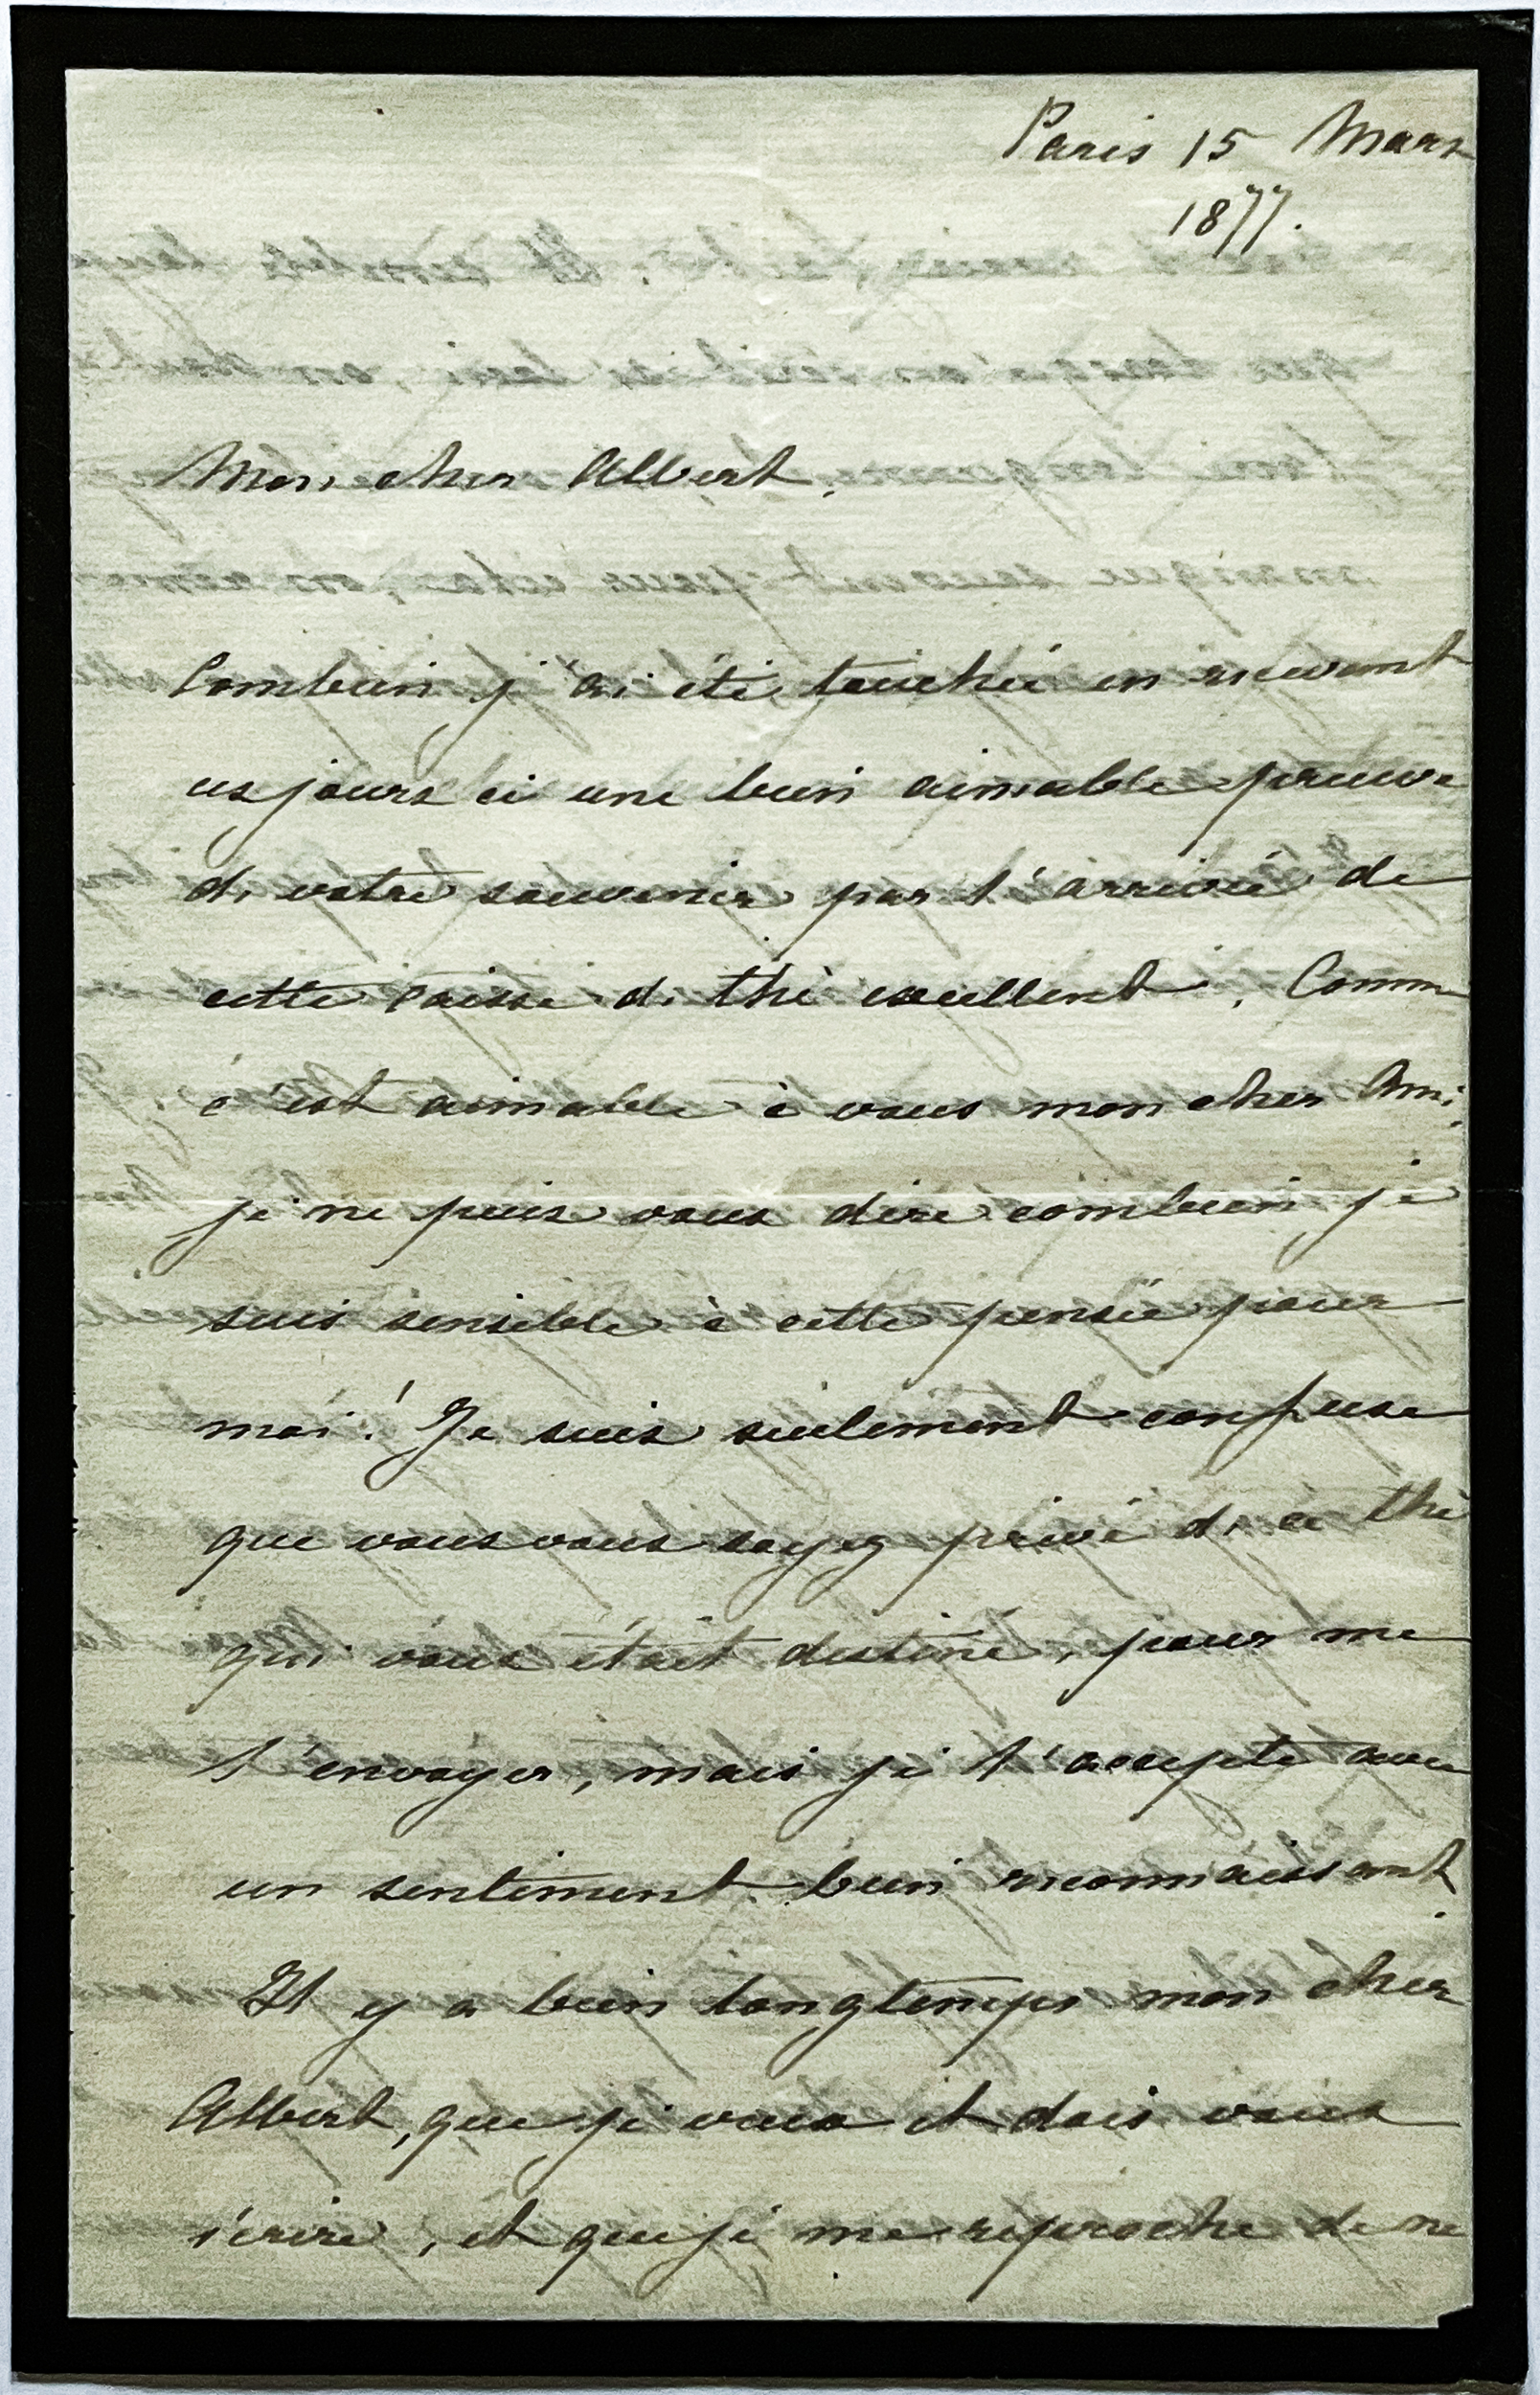 Paris 15 Mars
1877.
Mon cher Albert,
Combien j'ai été touchée en recevant
ces jours ci une bien aimable preuve
de votre souvenir par l'arrivée de
cette caisse de thé excellent. Comme
c'est aimable à vous mon cher Ami,
je ne puis vous dire combien je
suis sensible à cette pensée pour
moi! Je suis seulement confuse
que vous vous soyez privé de ce thé
qui vous était destiné, pour me
l'envoyer, mais je l'accepte avec
un sentiment bien reconnaissant.
Il y a bien longtemps mon cher
Albert, que je veux et dois vous
écrire, et que je me reproche de ne